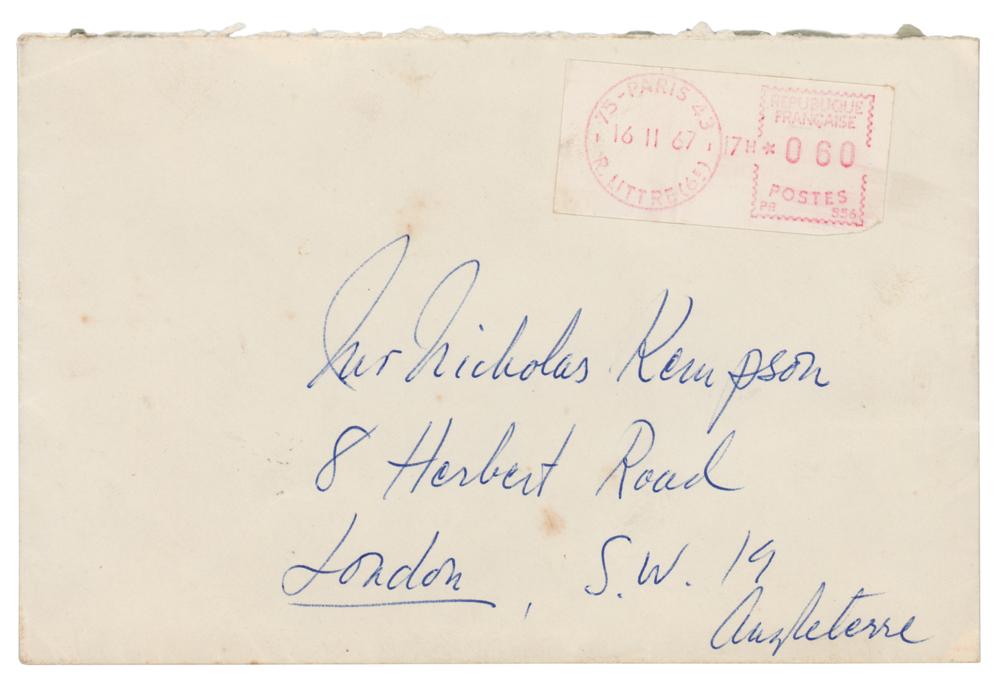 75 - PARIS 43
R. LITTRE (6E)
16 11 67
17H
REPUBLIQUE
FRANÇAISE
* 0 60
POSTES
PB 556
Mr Nicholas Kempson
8 Herbert Road
London, S.W. 19
Angleterre